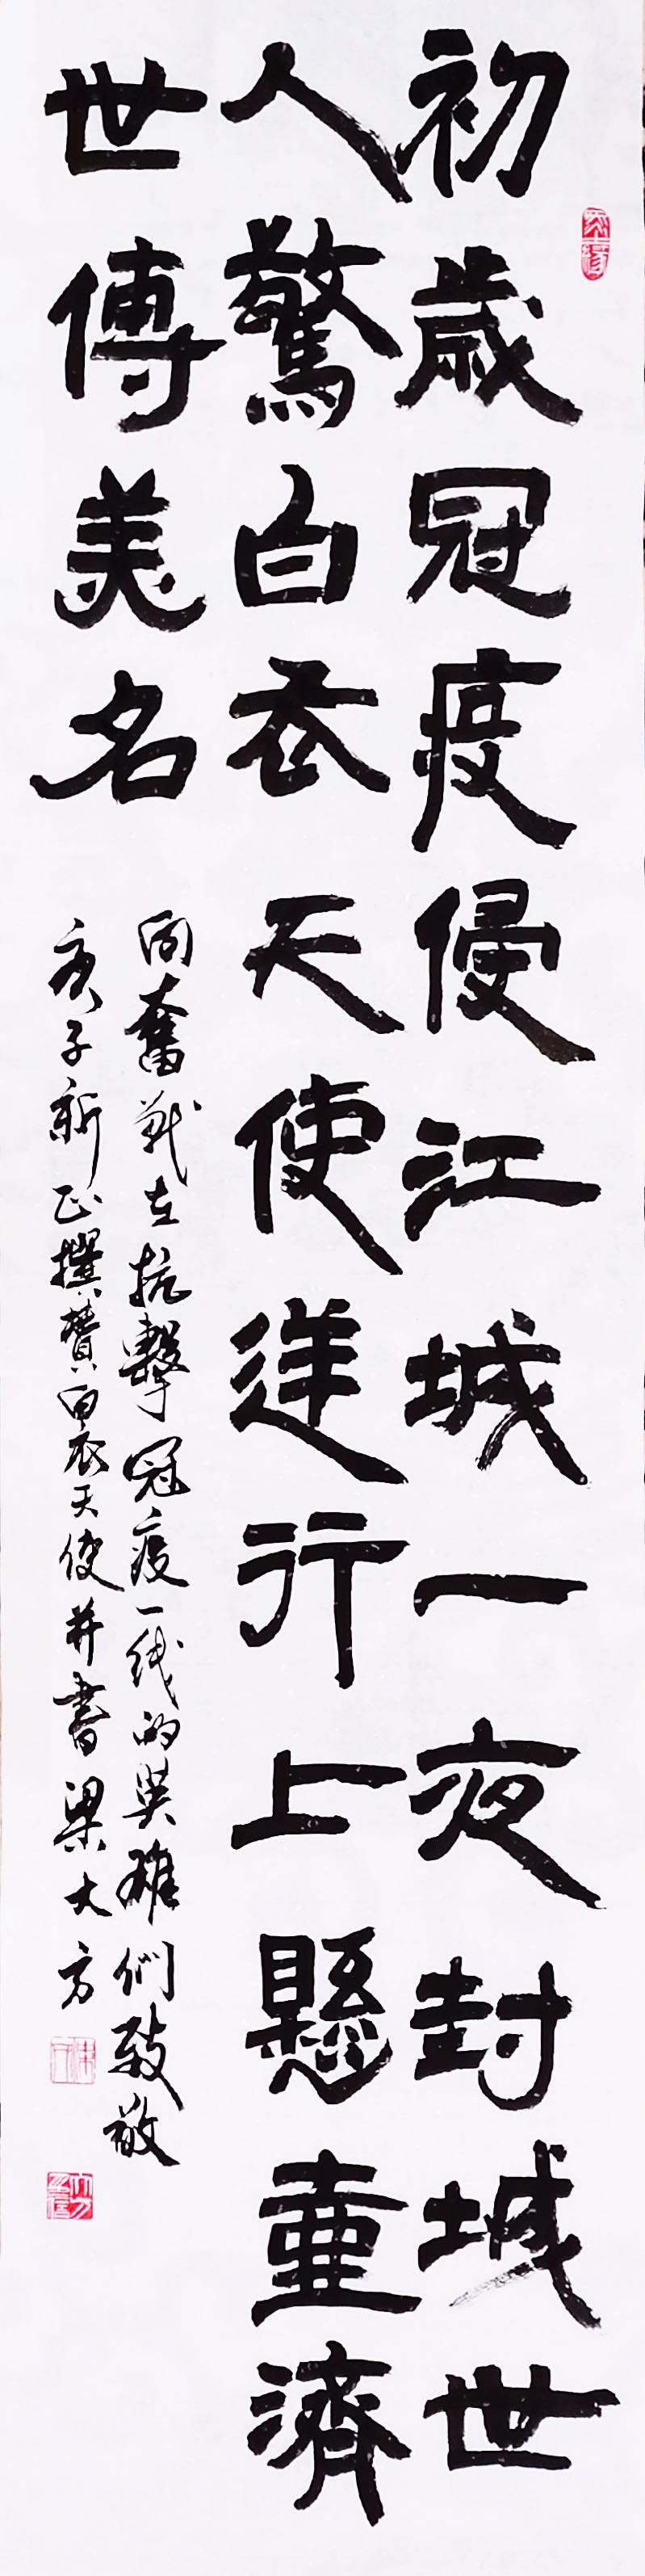 初歲冠疫侵江城一夜封城世
人驚白衣天使逆行上懸壺濟
世傳美名
向奮戰在抗擊冠疫一线的英雄們致敬
庚子新正撰贊白衣天使并書梁大方